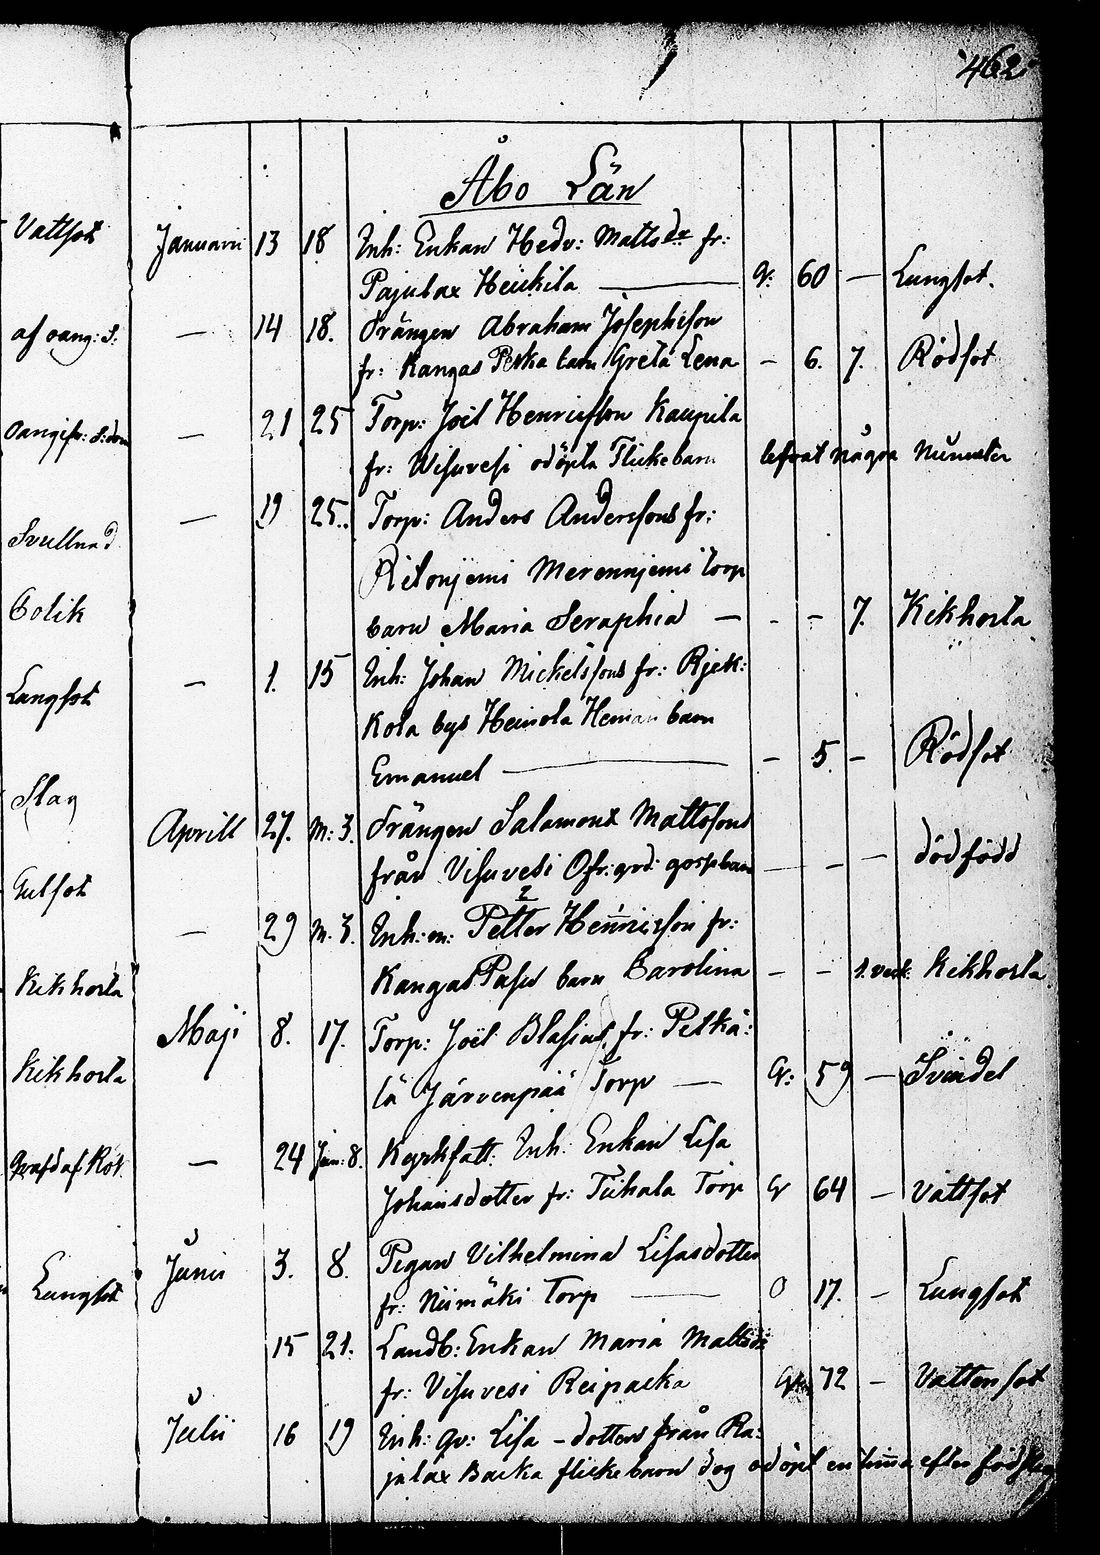 462
Åbo Län
Vattsot
Januarii 13 18 Inh: Enkan Hedv: Mattsdr fr:
Pajulax Heickila — G: 60 — Lungsot.
af oäng: S.
— 14 18. Drängen Abraham Josephsson
fr: Kangas Pekka barn Greta Lena — 6. 7. Rödsot
— 21 25 Torp: Joel Henricsson Kaupila
fr: Wisuvesi odöpta Flickebarn lefvat några Minuter
— 19 25. Torp: Anders Anderssons fr:
Svullnad
Ritonjemi Merennjemi torp
Colik
barn Maria Seraphia — - – 7. Kikhosta
— 1. 15 Inh: Johan Mickelssons fr: Rjek:
Lungsot
Kola bys Heinola barn
Emanuel — – 5. – Rödsot
Slag
Aprill 27. M: 3. Drängen Salamons Mattssons
från Visuvesi — – — dödfödd
Gulsot
— 29 M. 3. Inh: Petter Henricsson fr:
Kangas Pasu barn Carolina – – Kikhosta
Kikhosta
Maji 8. 17. Torp: Joël Blasius fr: Pelkä:
lä Järvenpää Torp — G: 59 — Svindel
Kikhosta
— 24 Jun: 8. Kyrkfatt: Inh: Enkan Lisa
Johansdotter fr: Tuhala Torp G 64 – Vattsot
Junii 3. 8. Pigan Vilhelmina Lisasdotter
fr: Niimäki Torp — O 17. – Lungsot
Lungsot
15 21. Landb: Enkan Maria Mattsdr
fr: Visuvesi Reipacka 72 – Vattensot
Julii 16 19 Inh: qv: Lisa – dotters från Pa:
julax Backa flickebarn dog odöpt en timma efter födslen